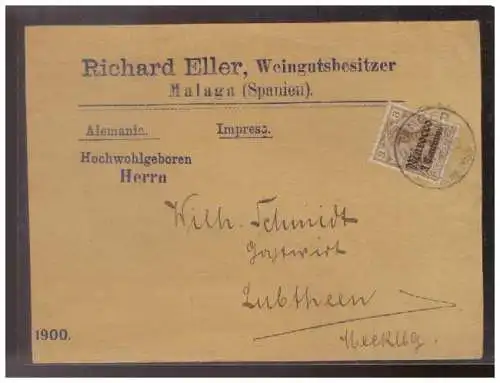 Richard Eller, Weingutsbesitzer
Malaga (Spanien).
Alemania. Impreso.
Marocco
Hochwohlgeboren
Herrn
Wilh. Schmidt
Gastwirt
Lubtheen
Mecklbg.
1900.